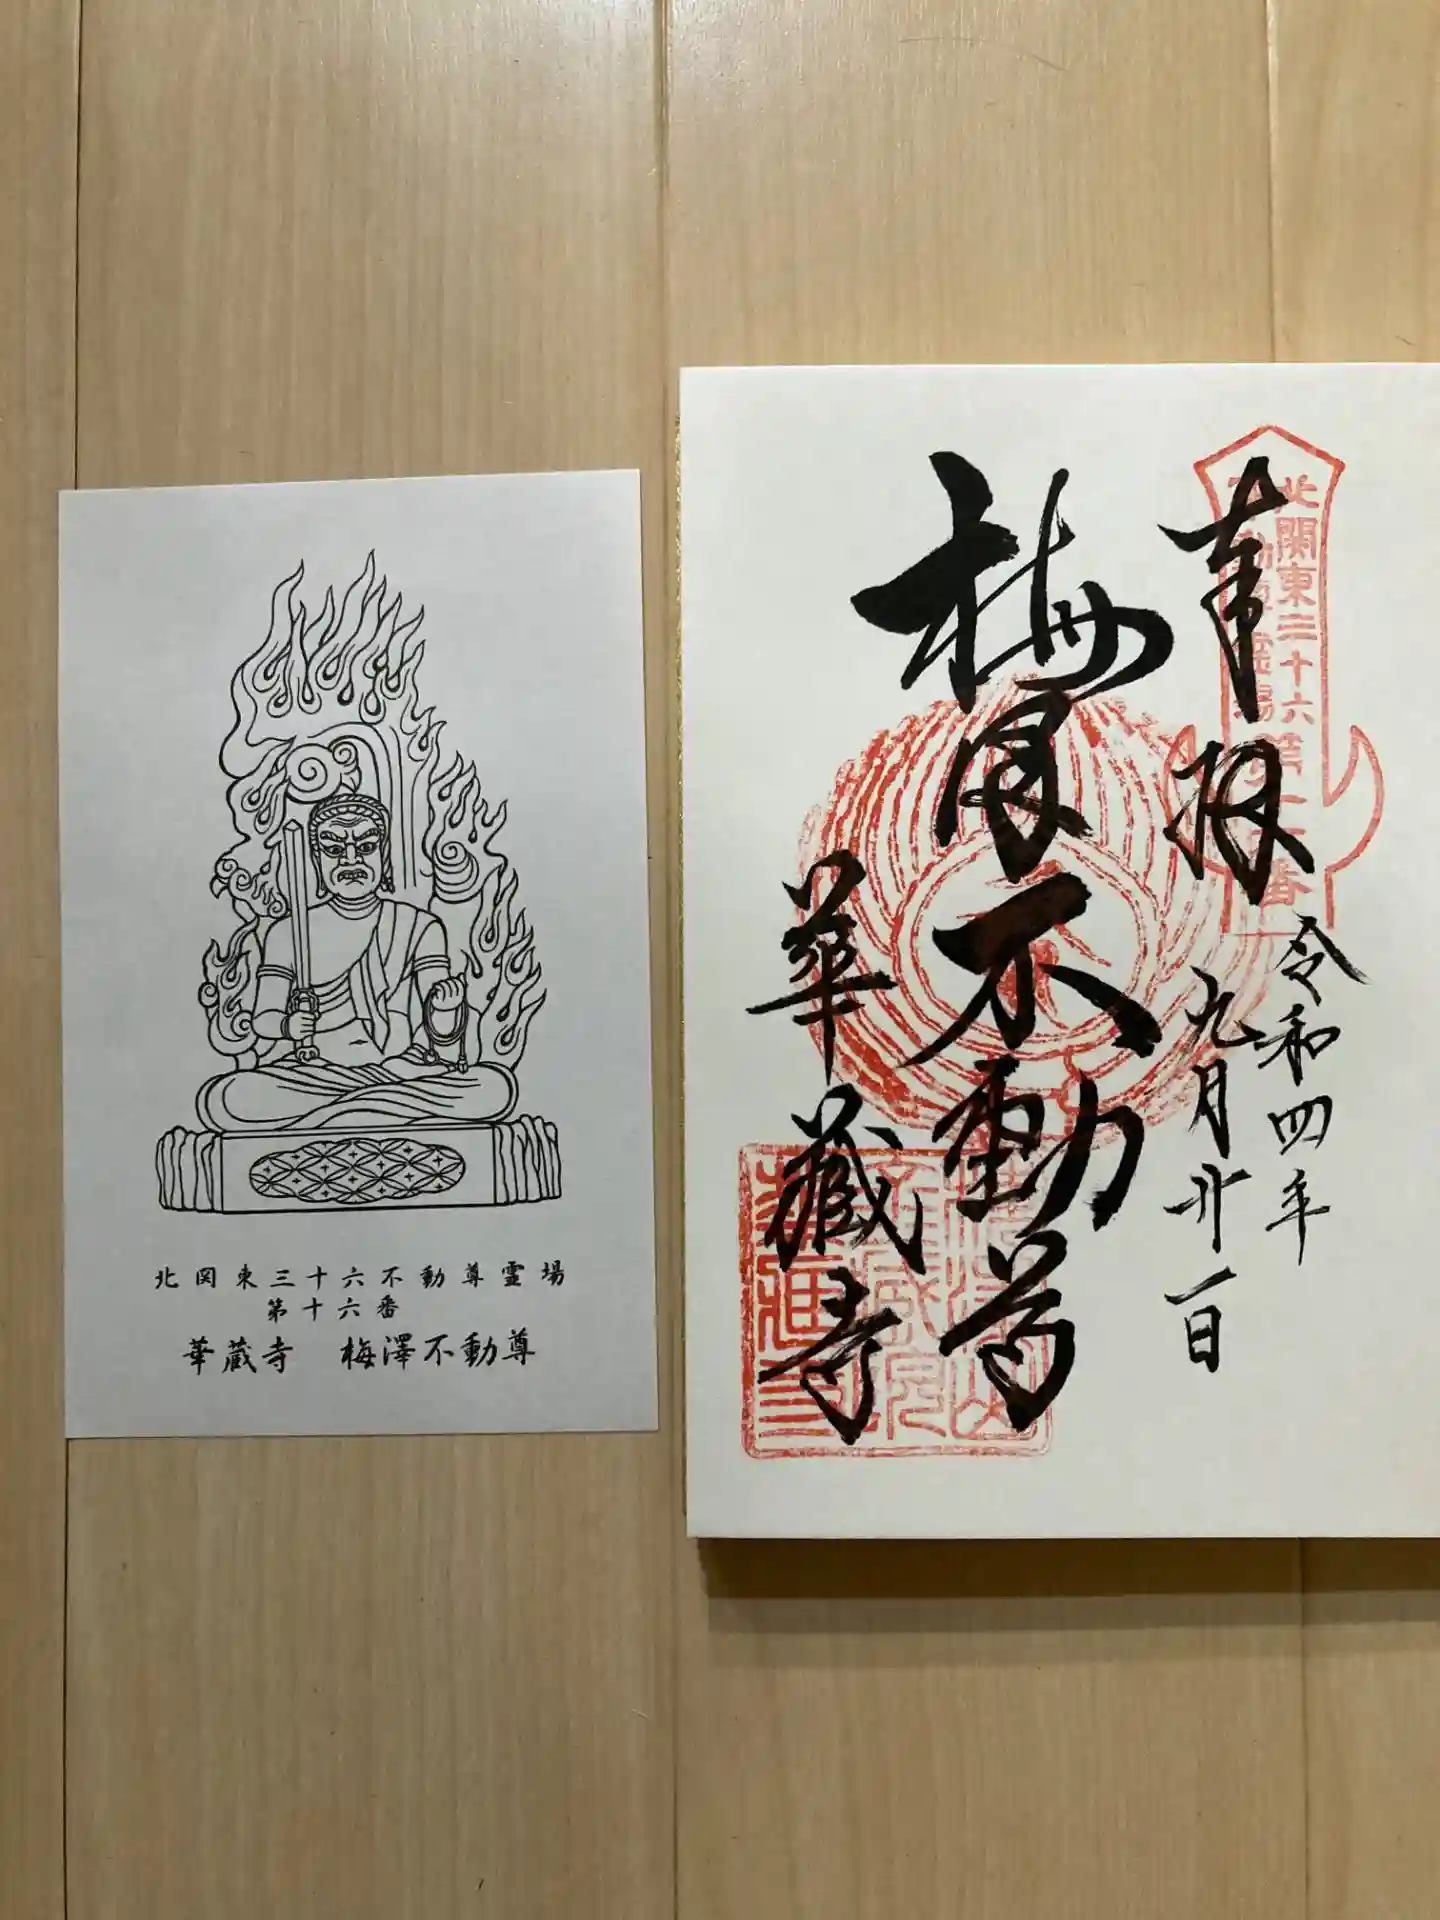 北関東三十六不動尊霊場
第十六番
華蔵寺　梅澤不動尊
奉拝
令和四年
九月廿一日
梅澤不動尊
華蔵寺
北関東三十六
霊場
番